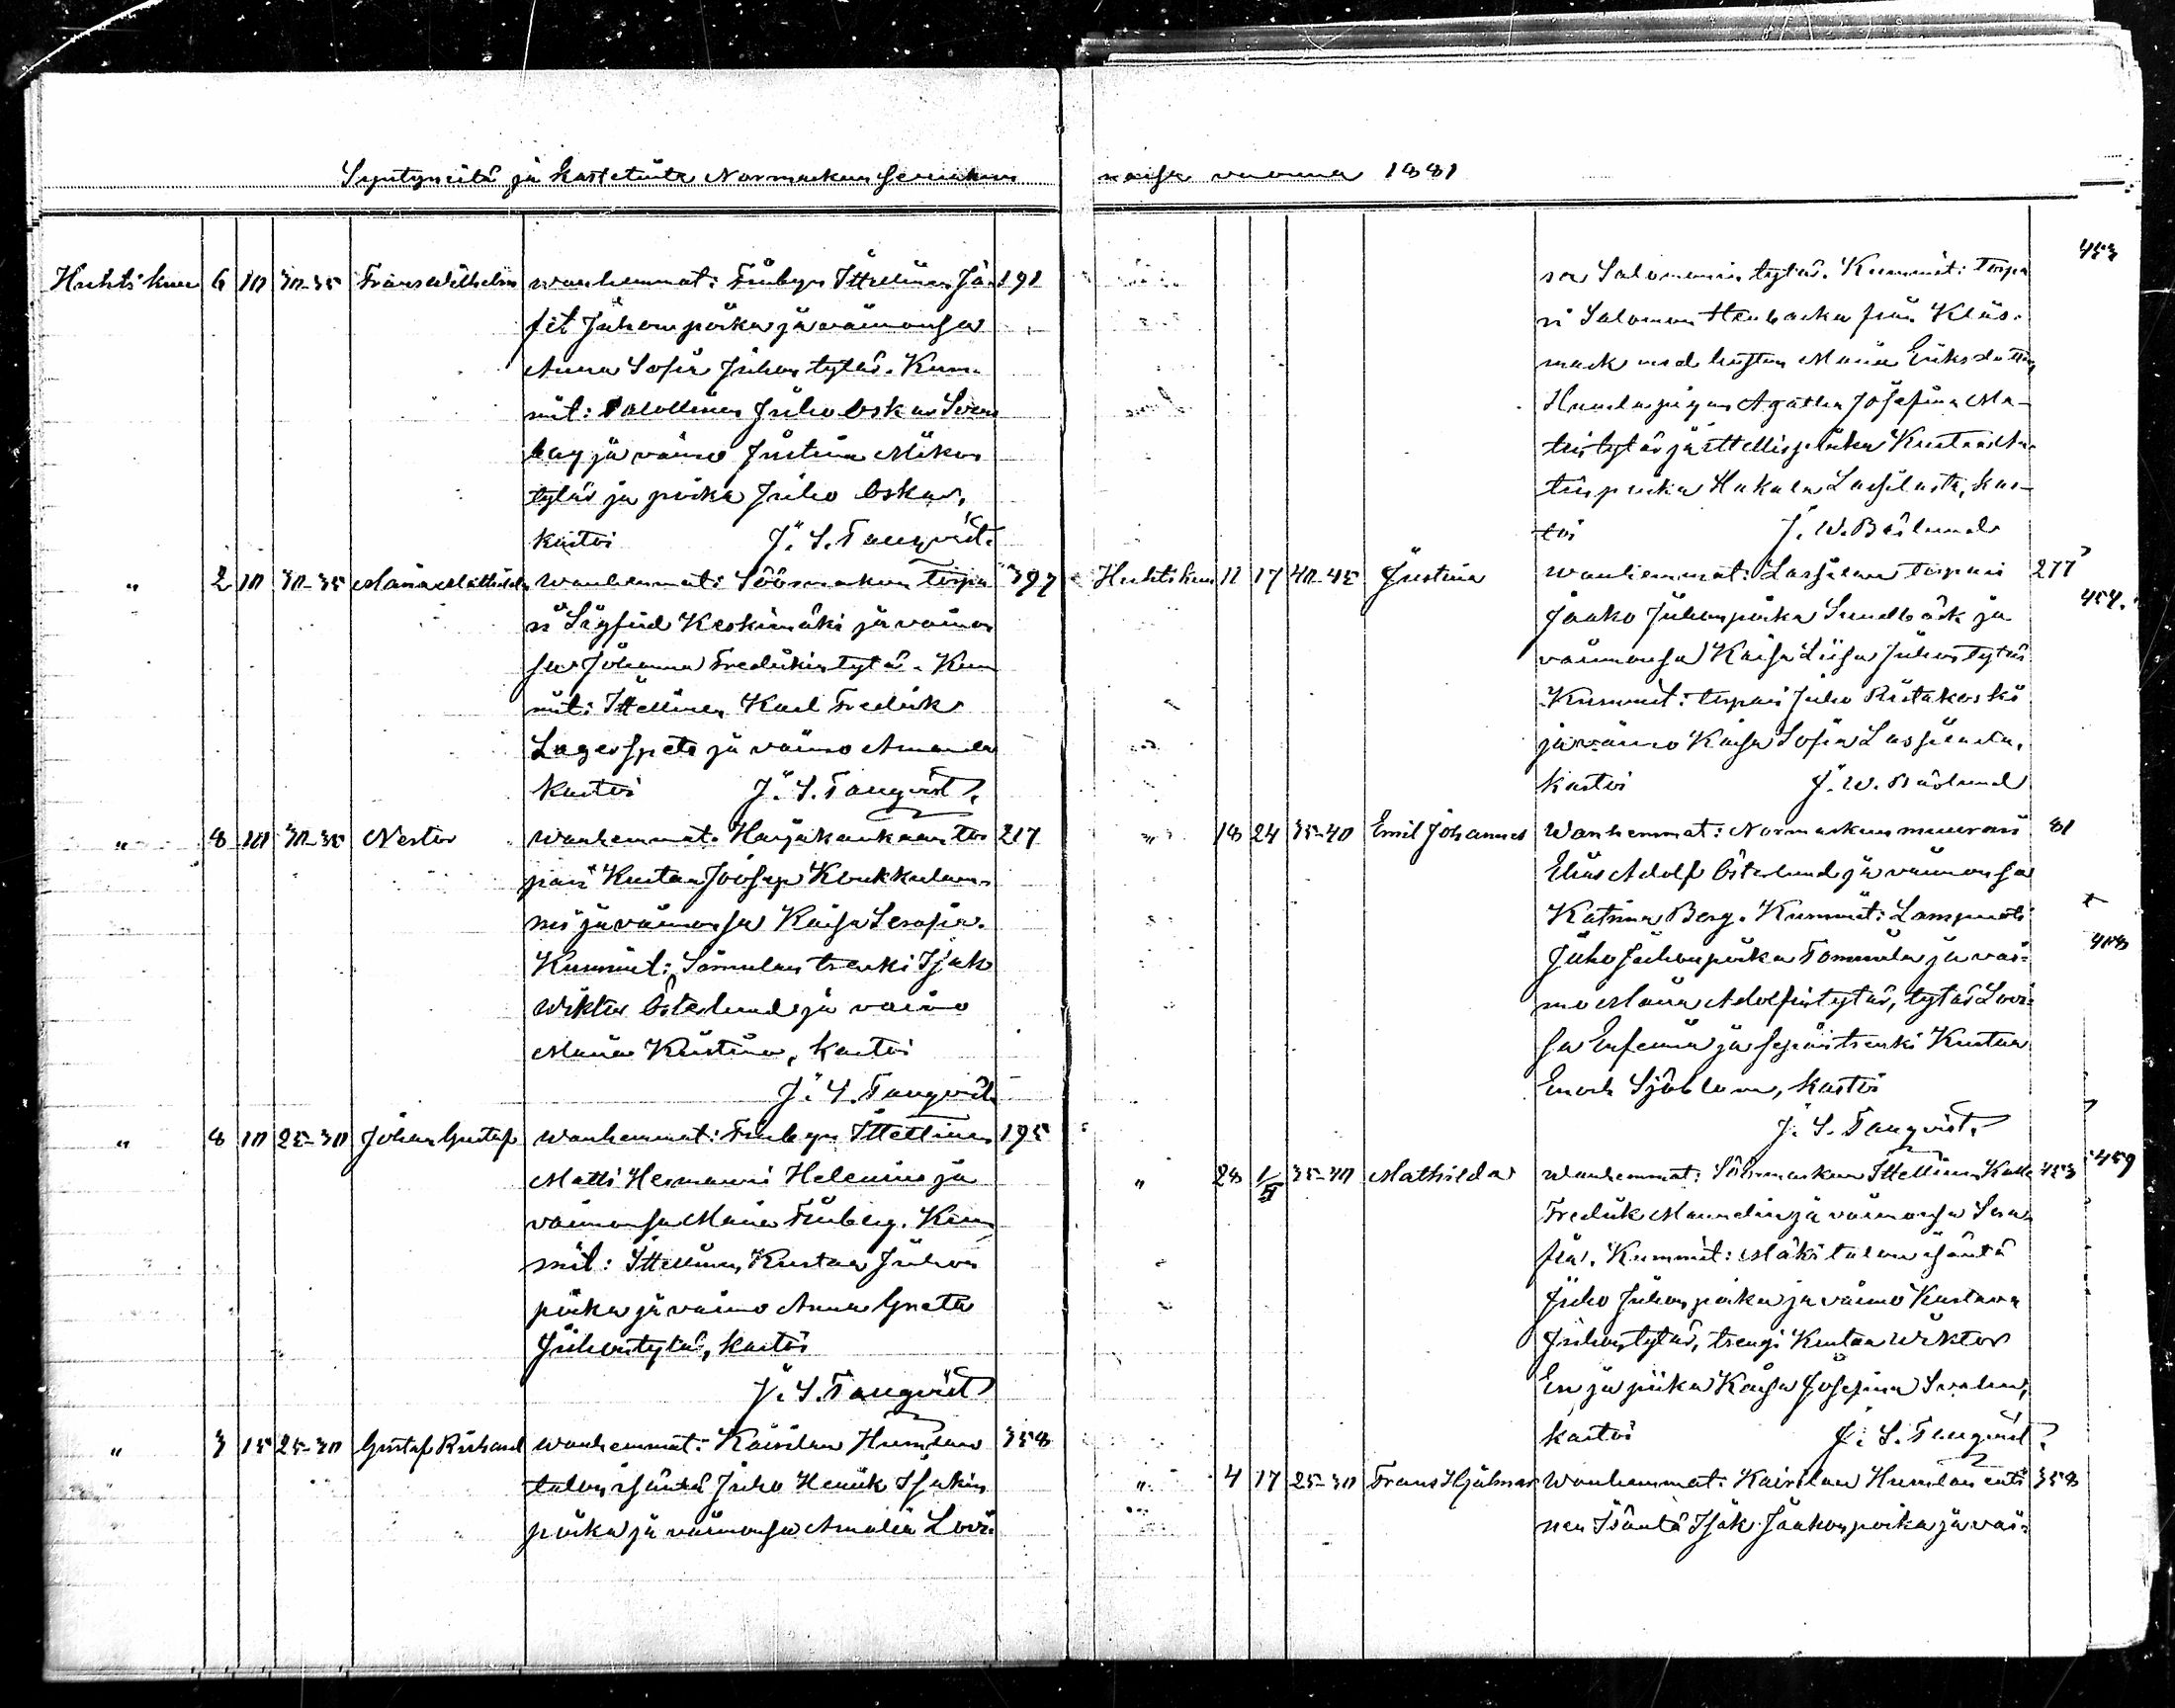 Syntyneitä ja kastetuita Normarkun seurakun
Huhtikuu 6 10 30-35 Frans Wilhelm wanhemmat: Finbyn Ittellinen Jo- 191
sef Juhonpoika ja vaimonsa
Anna Sofia Juhontytär. Kum-
mit: Ittellinen Juho Oskar
ja vaimo Justina Mikon
tytär ja poika Juho Oskar,
kastoi J. S. Tanqvist.
" 2 10 30-35 Maria Mathilda wanhemmat: Söörmarkun torpa 397
ri Sigfrid Keskimäki ja vaimon
sa Johanna Fredrikintytär. Kum
mit: Ittellinen Karl Fredrik
Lagerspets ja vaimo Amanda
kastoi J. S. Tanqvist.
" 8 10 30-35 Nestor wanhemmat: Harjakankaan tor 217
pari Kustaa Joosep Koukkulam-
mi ja vaimonsa Kaisa Serafia.
Kummit: trenki Isak
Wiktor Österlund ja vaimo
Maria Kristina, kastoi
J. S. Tanqvist
" 8 10 25-30 Johan Gustaf wanhemmat: Finbyn Ittellinen 195
Matti Hermanni Helenius ja
vaimonsa Maria Finberg. Kum
mit: Ittellinen Kustaa Juhon
poika ja vaimo Anna Greta
Juhontytär, kastoi
J. S. Tanqvist
" 3 15 25-30 Gustaf Richard wanhemmat: Kairilan Humlan 358
talon isäntä Juho Henrik Isakin
poika ja vaimonsa Amalia Lovi-
naisa vuonna 1881
sa Salomonintytär. Kummit: torpa 453
ri Salomon från Klås-
mark med hustru Maria Eriksdotter,
Agatha Josefina Ma-
tintytär ja ittellispoika Kustaa
tinpoika Hakala Lassilasta, kas-
toi J. W. Båslund
Huhtikuu 11 17 40-45 Justina wanhemmat: Lassilan torpari 277
454.
Jaako Juhonpoika Sundbäck ja
vaimonsa Kaisa Liisa Juhontytär
Kummit: torpari Juho Ristakoski
ja vaimo Kaisa Sofia Lassilasta,
kastoi J. W. Båslund
" 18 24 35-40 Emil Johannes Wanhemmat: Normarkun muurari 81
Elias Adolf Österlund ja vaimonsa
Katrina Berg. Kummit: Lampuoti
Juho Juhonpoika Tommila ja vai- 458
mo Maria Adolfintytär, tytär Lovi-
sa Eufemia ja sepäntrenki Kustaa
Enock Sjöblom, kastoi
J. S. Tanqvist.
" 28 1/5 35-40 Mathilda Wanhemmat: Söörmarkun Ittellinen Kalle 453 459
Fredrik Mannelin ja vaimonsa Sera
fia. Kummit: Mäkitalon isäntä
Juho Juhonpoika ja vaimo Kustava
Juhontytär, trengi Kustaa Wiktor
ja piika Kaisa Josefina
kastoi J. S. Tanqvist.
" 4 17 25-30 Frans Hjalmar Wanhemmat: Kairilan Humlan enti 358
nen Isäntä Isak Jaakonpoika ja vai-